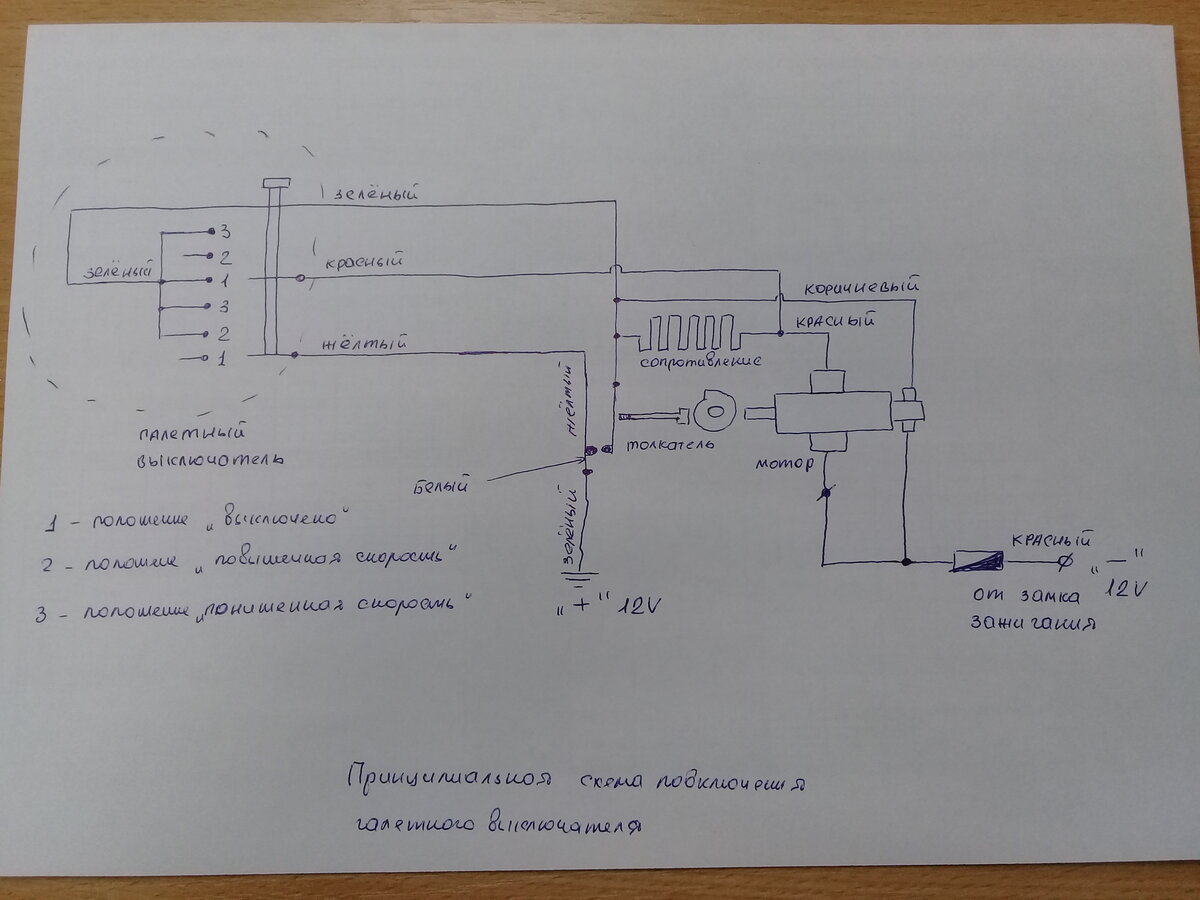 зелёный
3
2
зелёный
1
3
2
1
красный
жёлтый
коричневый
красный
сопротивление
жёлтый
толкатель
мотор
белый
зелёный
галетный
выключатель
1 - положение „выключено“
2 - положение „повышенная скорость“
3 - положение „пониженная скорость“
„+“ 12V
красный
„—“
12V
от замка
зажигания
Принципиальная схема подключения
галетного выключателя